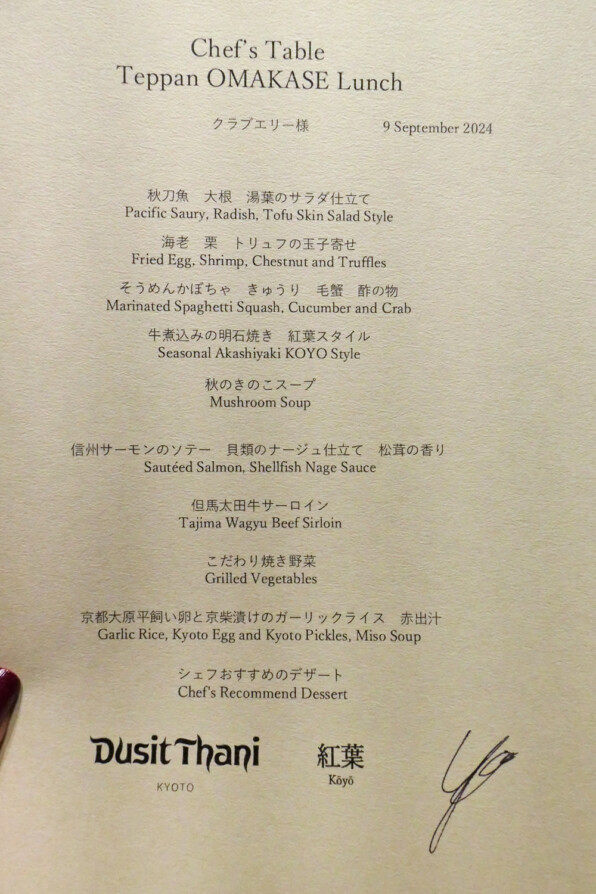 Chef's Table
Teppan OMAKASE Lunch
クラブエリー様 9 September 2024
秋刀魚 大根 湯葉のサラダ仕立て
Pacific Saury, Radish, Tofu Skin Salad Style
海老 栗 トリュフの玉子寄せ
Fried Egg, Shrimp, Chestnut and Truffles
そうめんかぼちゃ きゅうり 毛蟹 酢の物
Marinated Spaghetti Squash, Cucumber and Crab
牛煮込みの明石焼き 紅葉スタイル
Seasonal Akashiyaki KOYO Style
秋のきのこスープ
Mushroom Soup
信州サーモンのソテー 貝類のナージュ仕立て 松茸の香り
Sautéed Salmon, Shellfish Nage Sauce
但馬太田牛サーロイン
Tajima Wagyu Beef Sirloin
こだわり焼き野菜
Grilled Vegetables
京都大原平飼い卵と京柴漬けのガーリックライス 赤出汁
Garlic Rice, Kyoto Egg and Kyoto Pickles, Miso Soup
シェフおすすめのデザート
Chef's Recommend Dessert
Dusit Thani
KYOTO
紅葉
Kōyō